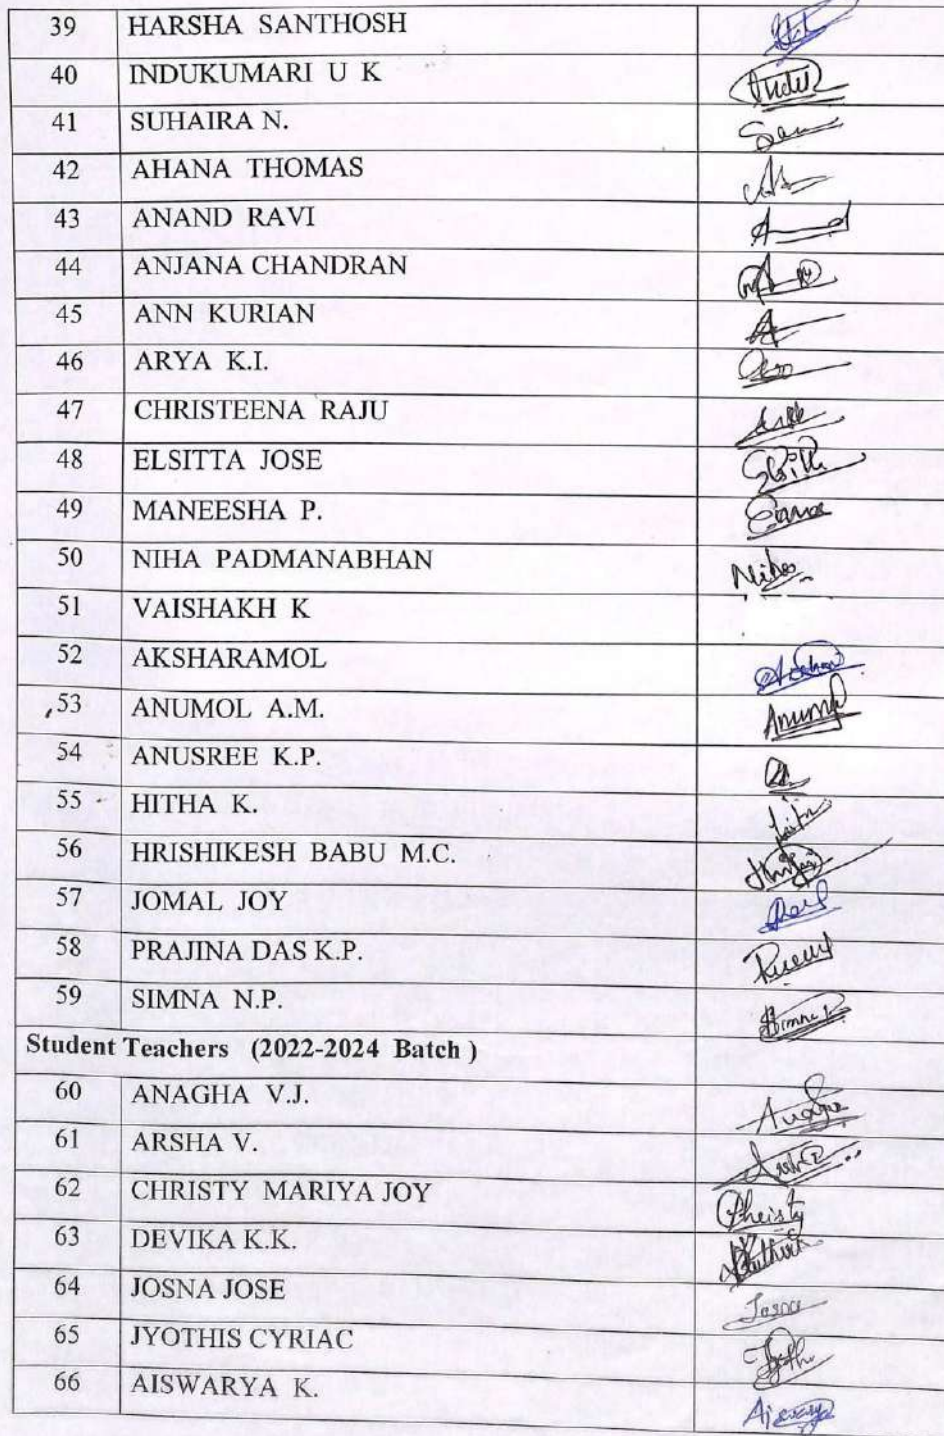 39 HARSHA SANTHOSH
40 INDUKUMARI U K Indu
41 SUHAIRA N.
42 AHANA THOMAS
43 ANAND RAVI
44 ANJANA CHANDRAN
45 ANN KURIAN
46 ARYA K.I.
47 CHRISTEENA RAJU
48 ELSITTA JOSE
49 MANEESHA P.
50 NIHA PADMANABHAN Niha
51 VAISHAKH K
52 AKSHARAMOL
53 ANUMOL A.M. Anumol
54 ANUSREE K.P.
55 HITHA K.
56 HRISHIKESH BABU M.C.
57 JOMAL JOY
58 PRAJINA DAS K.P.
59 SIMNA N.P.
Student Teachers (2022-2024 Batch )
60 ANAGHA V.J.
61 ARSHA V.
62 CHRISTY MARIYA JOY Christy
63 DEVIKA K.K.
64 JOSNA JOSE Josna
65 JYOTHIS CYRIAC
66 AISWARYA K. Aiswarya